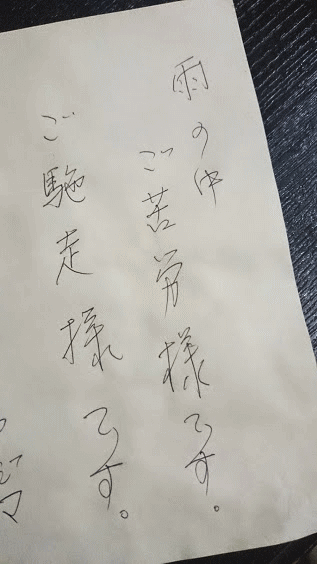 雨の中
ご苦労様です。
ご馳走様です。